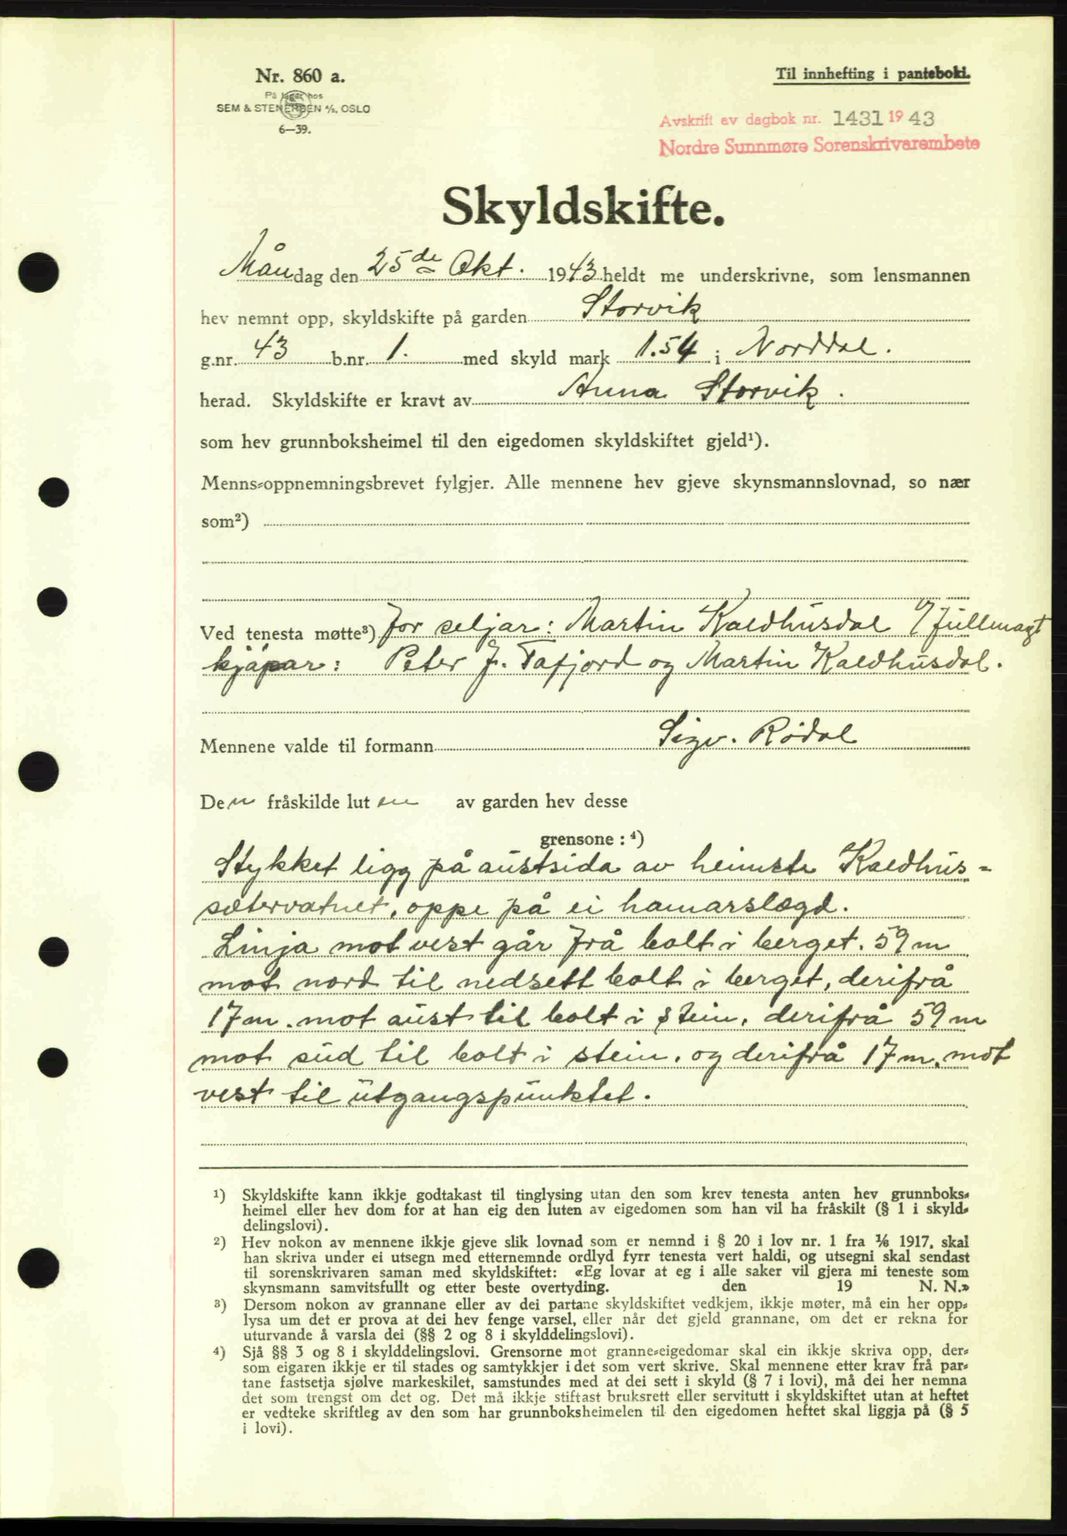 Nr. 860 a.
På lager hos
SEM & STENERSEN A/S, OSLO
6—39.
Til innhefting i pantebok.
Avskrift av dagbok nr. 1431 1943
Nordre Sunnmøre Sorenskrivarembete
Skyldskifte.
Måndag den 25de Okt. 1943 heldt me underskrivne, som lensmannen
hev nemnt opp, skyldskifte på garden Storvik
g.nr. 43 b.nr. 1. med skyld mark 1.54 i Norddal.
herad. Skyldskifte er kravt av Anna Storvik.
som hev grunnboksheimel til den eigedomen skyldskiftet gjeld¹).
Menns-oppnemningsbrevet fylgjer. Alle mennene hev gjeve skynsmannslovnad, so nær
som²)
Ved tenesta møtte³) for seljar: Martin Kaldhusdal e/ fullmagt
kjøpar: Peter J. Tafjord og Martin Kaldhusdal.
Mennene valde til formann Sigv. Rødal
Den fråskilde luten av garden hev desse
grensone : ⁴)
Stykket ligg på austsida av heimste Kaldhus-
sætervatnet, oppe på ei hamarslægd.
Linja mot vest går frå bolt i berget, 59 m
mot nord til nedsett bolt i berget, derifrå
17 m. mot aust til bolt i stein, derifrå 59 m
mot sud til bolt i stein, og derifrå 17 m. mot
vest til utgangspunktet.
¹) Skyldskifte kann ikkje godtakast til tinglysing utan den som krev tenesta anten hev grunnboks-
heimel eller hev dom for at han eig den luten av eigedomen som han vil ha fråskilt (§ 1 i skyld-
delingslovi).
²) Hev nokon av mennene ikkje gjeve slik lovnad som er nemnd i § 20 i lov nr. 1 fra 1/6 1917, skal
han skriva under ei utsegn med etternemnde ordlyd fyrr tenesta vert haldi, og utsegni skal sendast
til sorenskrivaren saman med skyldskiftet: «Eg lovar at eg i alle saker vil gjera mi teneste som
skynsmann samvitsfullt og etter beste overtyding. den 19 N. N.»
³) Dersom nokon av grannane eller av dei partane skyldskiftet vedkjem, ikkje møter, må ein her opp-
lysa um det er prova at dei hev fenge varsel, eller når det gjeld grannane, om det er rekna for
uturvande å varsla dei (§§ 2 og 8 i skylddelingslovi).
⁴) Sjå §§ 3 og 8 i skylddelingslovi. Grensorne mot granne-eigedomar skal ein ikkje skriva opp, der-
som eigaren ikkje er til stades og samtykkjer i det som vert skrive. Skal mennene etter krav frå par-
tane fastsetja sjølve markeskilet, samstundes med at dei sett i skyld (§ 7 i lovi), må dei her nemna
det som trengst om det og. Det må ikkje stiftast bruksrett eller servitutt i skyldskiftet utan at heftet
er vedteke skriftleg av den som har grunnboksheimelen til den eigedomen heftet skal liggja på (§ 5
i lovi).